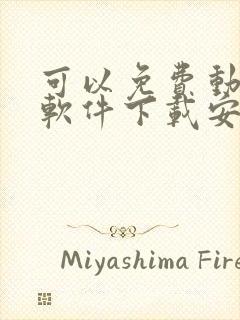 可以免費動
軟件下載安
Miyashima Fire